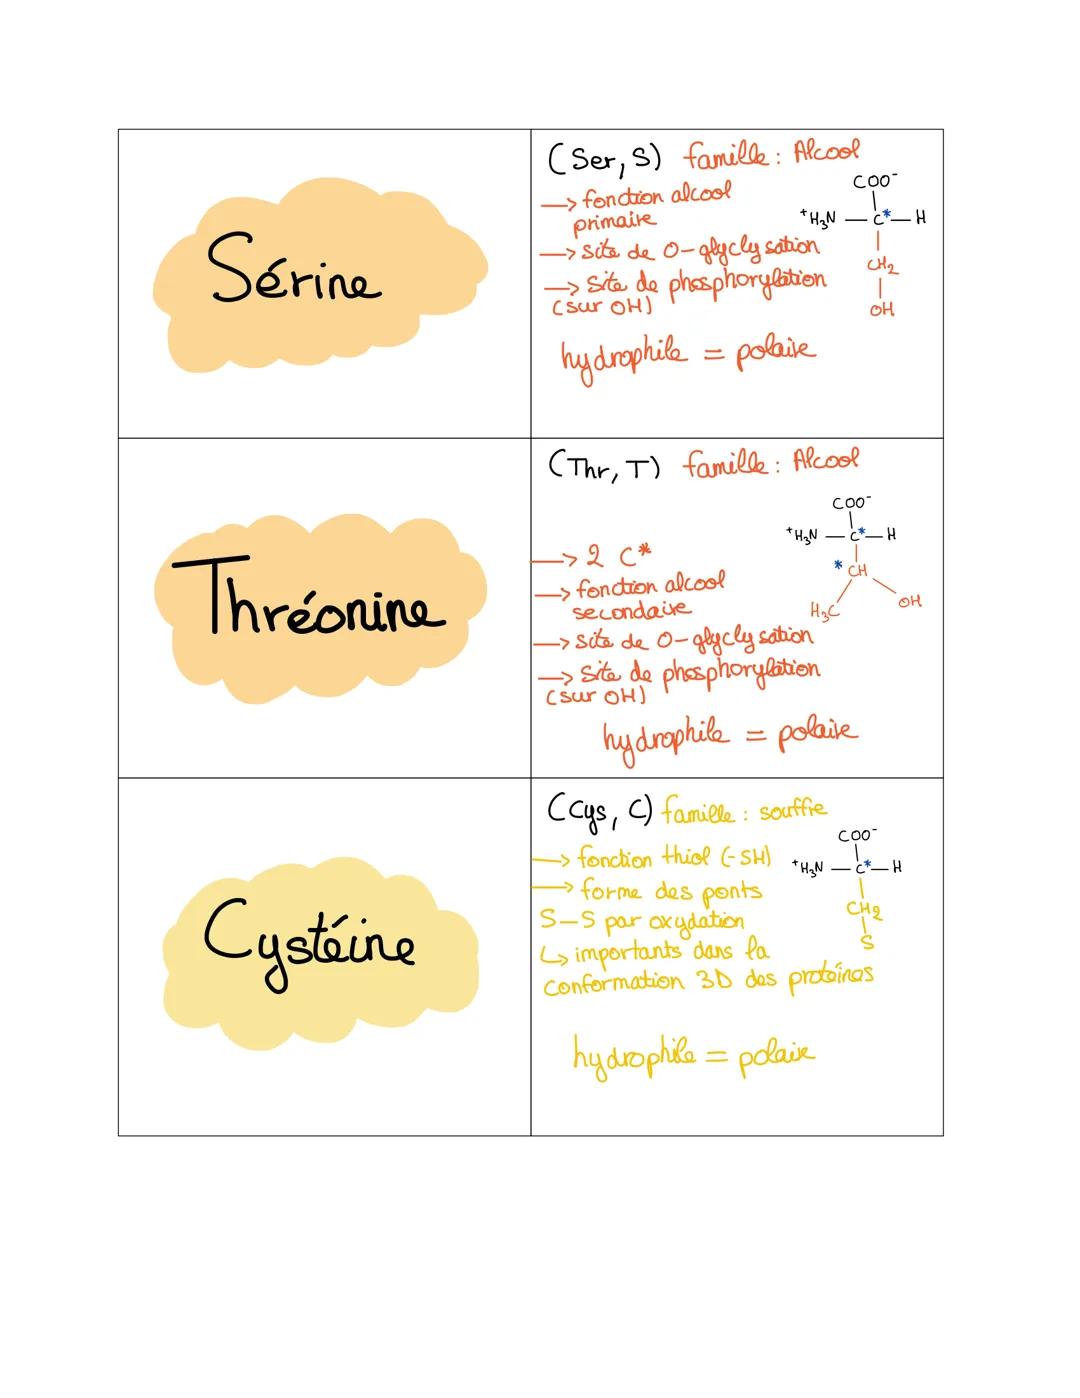 Sérine
(Ser, S) famille : Alcool
→ fonction alcool
primaire
→ site de O-glyclysation
→ site de phosphorylation
(sur OH)
hydrophile = polaire
COO⁻
⁺H₃N — C* — H
CH₂
OH
Thréonine
(Thr, T) famille : Alcool
→ 2 C*
→ fonction alcool
secondaire
→ site de O-glyclysation
→ site de phosphorylation
(sur OH)
hydrophile = polaire
COO⁻
⁺H₃N — C* — H
* CH
H₃C OH
Cystéine
(Cys, C) famille : souffre
→ fonction thiol (-SH)
→ forme des ponts
S-S par oxydation
↳ importants dans la
conformation 3D des protéines
hydrophile = polaire
COO⁻
⁺H₃N — C* — H
CH₂
S